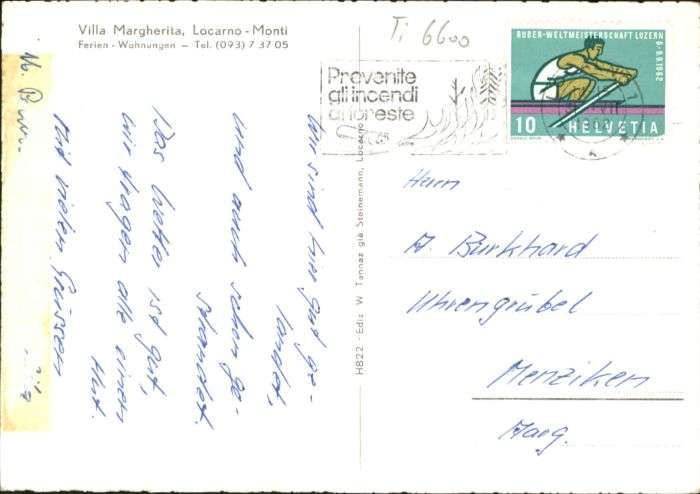 Villa Margherita, Locarno - Monti
Ferien - Wohnungen — Tel. (093) 7 37 05
Ti 6600
Prevenite
gli incendi
di foreste
RUDER-WELTMEISTERSCHAFT LUZERN
6-9.9.1962
10 HELVETIA
H822 - Ediz. W. Tannaz già Steinemann, Locarno
Wir sind hier gut ge-
landet,
und auch schon ge-
strandet.
Das Wetter ist gut,
wir tragen alle einen
Hut.
Mit vielen Grüssen
Herrn
A. Burkhard
Uhrengrübel
Menziken
Aarg.